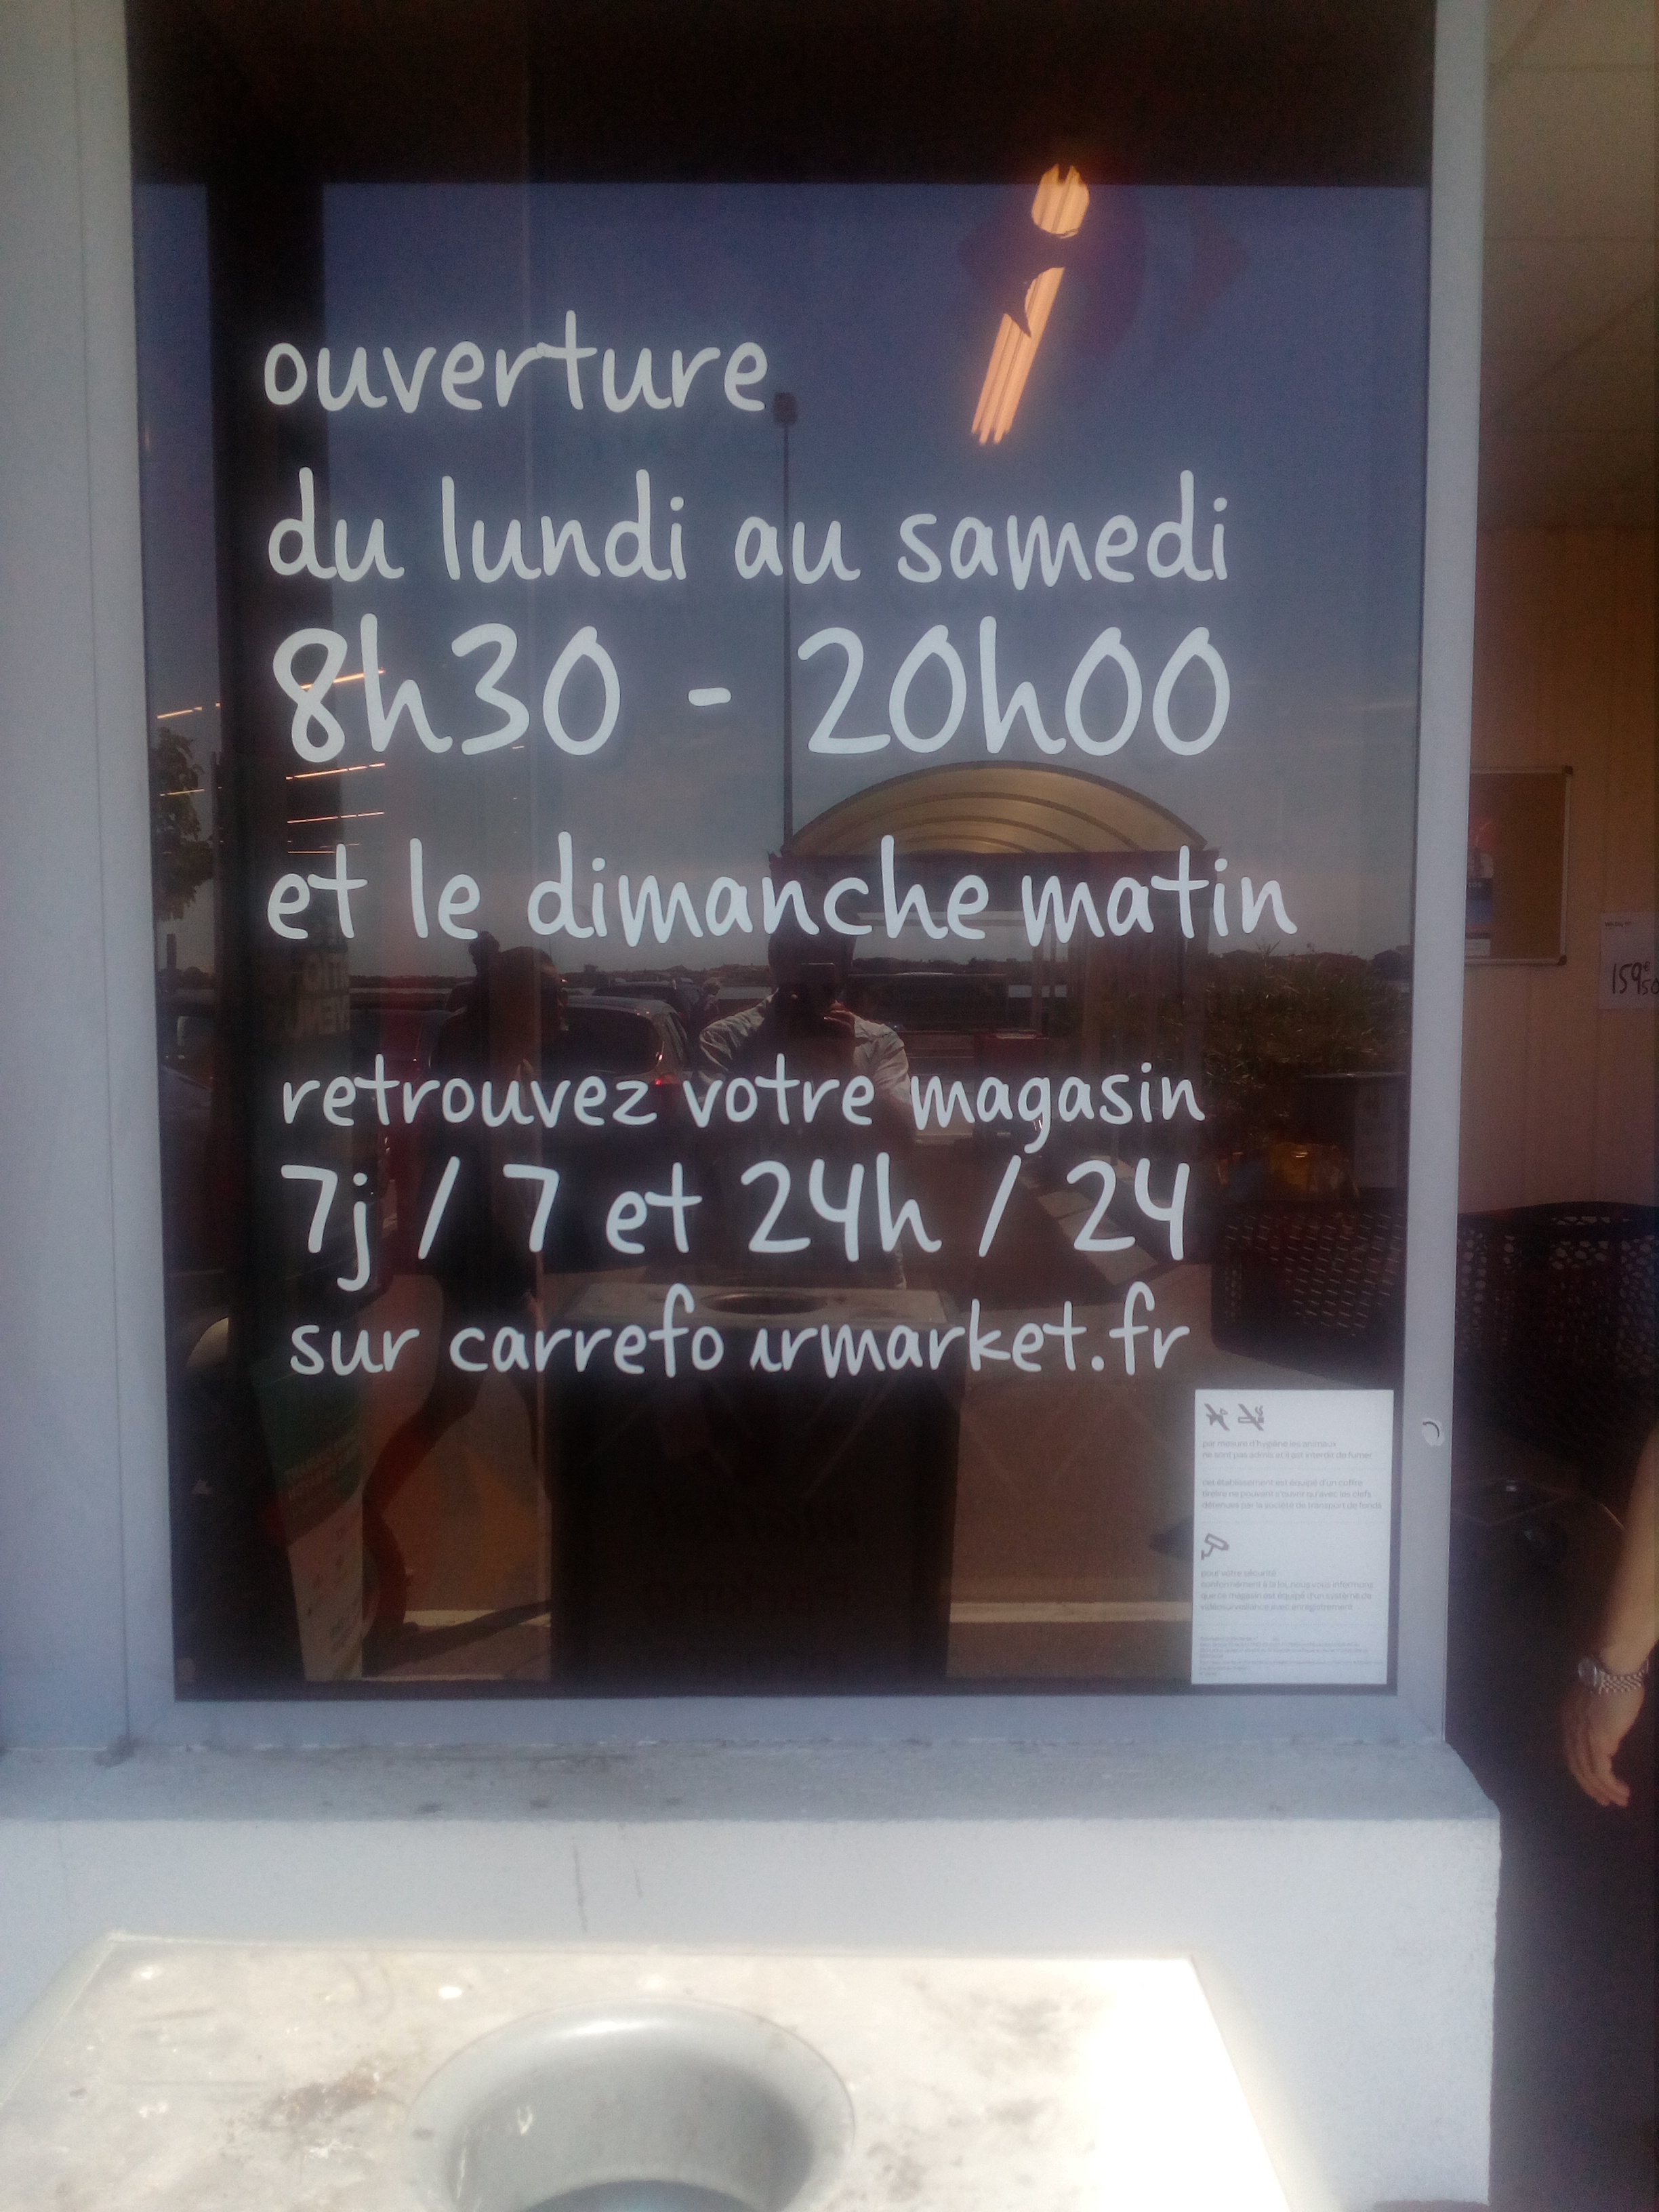 ouverture
du lundi au samedi
8h30 - 20h00
et le dimanche matin
retrouvez votre magasin
7j / 7 et 24h / 24
sur carrefo urmarket.fr
159€50
par mesure d'hygiène les animaux
ne sont pas admis et il est interdit de fumer
cet établissement est équipé d'un coffre
ne pouvant s'ouvrir qu'avec les clefs
détenues par la société de transport de fonds
pour votre sécurité
conformément à la loi, nous vous informons
que ce magasin est équipé d'un système de
vidéosurveillance avec enregistrement